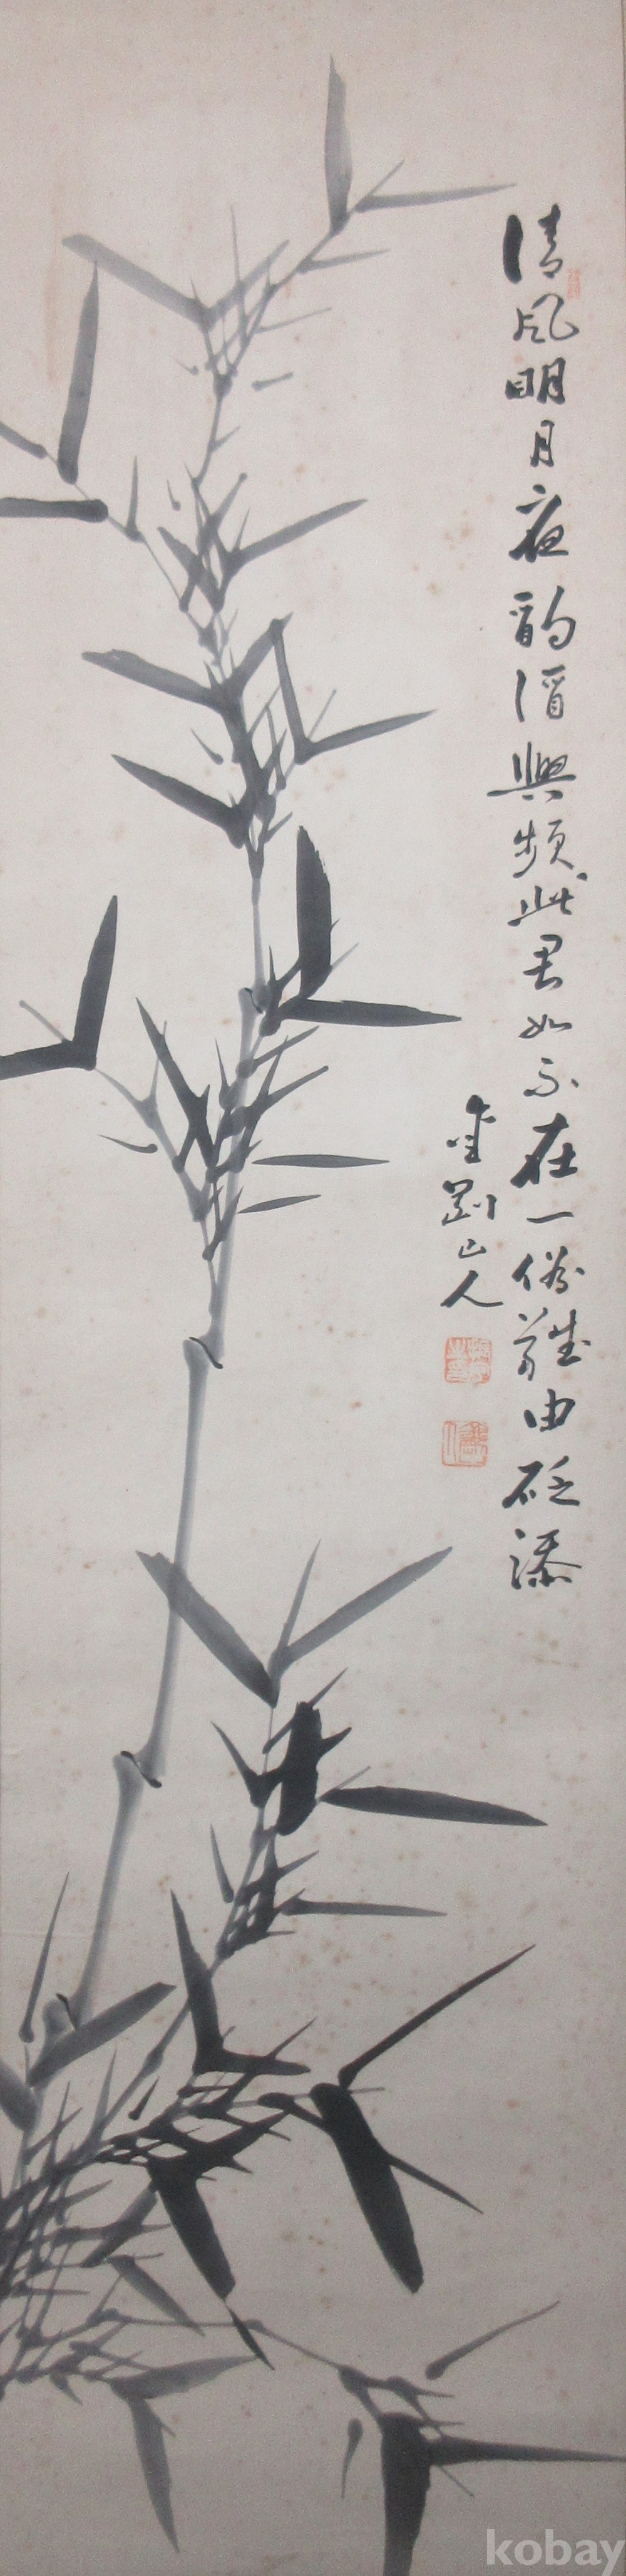 清風明月夜酌酒興頻此君如不在一俗難由砭添
金剛山人
kobay